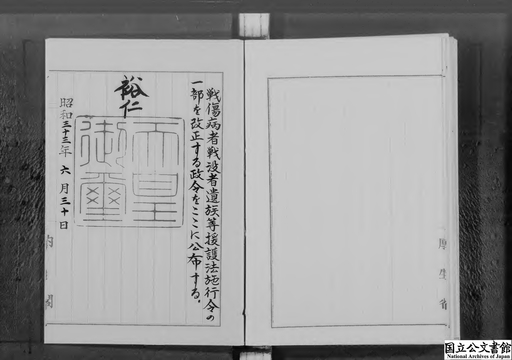 戦傷病者戦没者遺族等援護法施行令の
一部を改正する政令をここに公布する。
裕仁
天皇
御璽
昭和三十三年六月三十日
内閣
厚生省
国立公文書館
National Archives of Japan